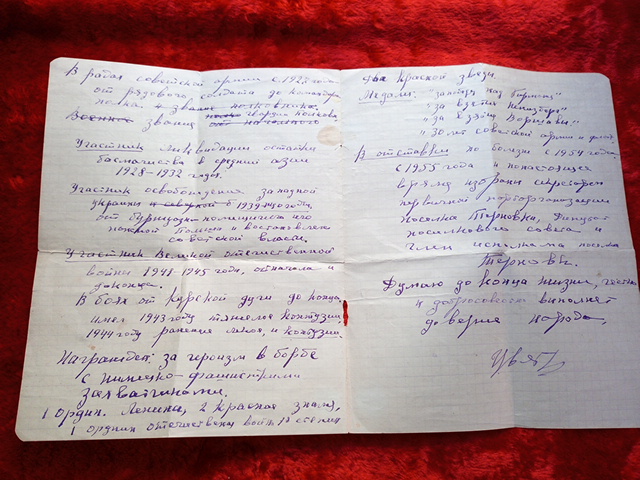 В рядах советской армии с 1927 года
от рядового солдата до командира
полка в звание полковника.
Военное звание гвардии полковн.
Участник ликвидации остатки
басмачества в средней азии
1928-1932 годах.
Участник освобождения западной
украины 1939-1940 годы
от буржуазно помещичьего
Польши и востановлена
советской власти.
Участник Великой отечественной
войны 1941-1945 годы, от начала и
до конца.
В боях от курской дуги до конца,
имел 1943 году тяжелая контузия,
1944 году ранения легкое, и контузии.
Награжден: за героизм в борбе
с немецко-фашистскими
захватчиками.
1 Орден. Ленина, 2 Красная знамя,
1 ордена отечествена война 1й степени
два Красной звезды.
Медали: "за победу над Германией"
"за взятия Кенигсберга"
"за взятия Варшавы"
"30 лет советской армии и флота
В отставки по болезни с 1954 года.
С 1955 года и по настоящея
время избран секретарем
первичной парторганизации
поселка Терновка, Депутат
поселкового совета и
член исполкома поселка
Терновки.
Думаю до конца жизни, честно
и добросовестно выполнять
доверия народа.